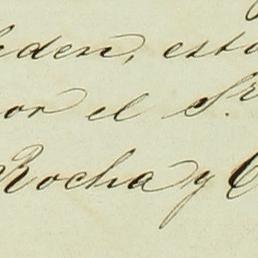 eden, esta
or el Sr
Rocha y C